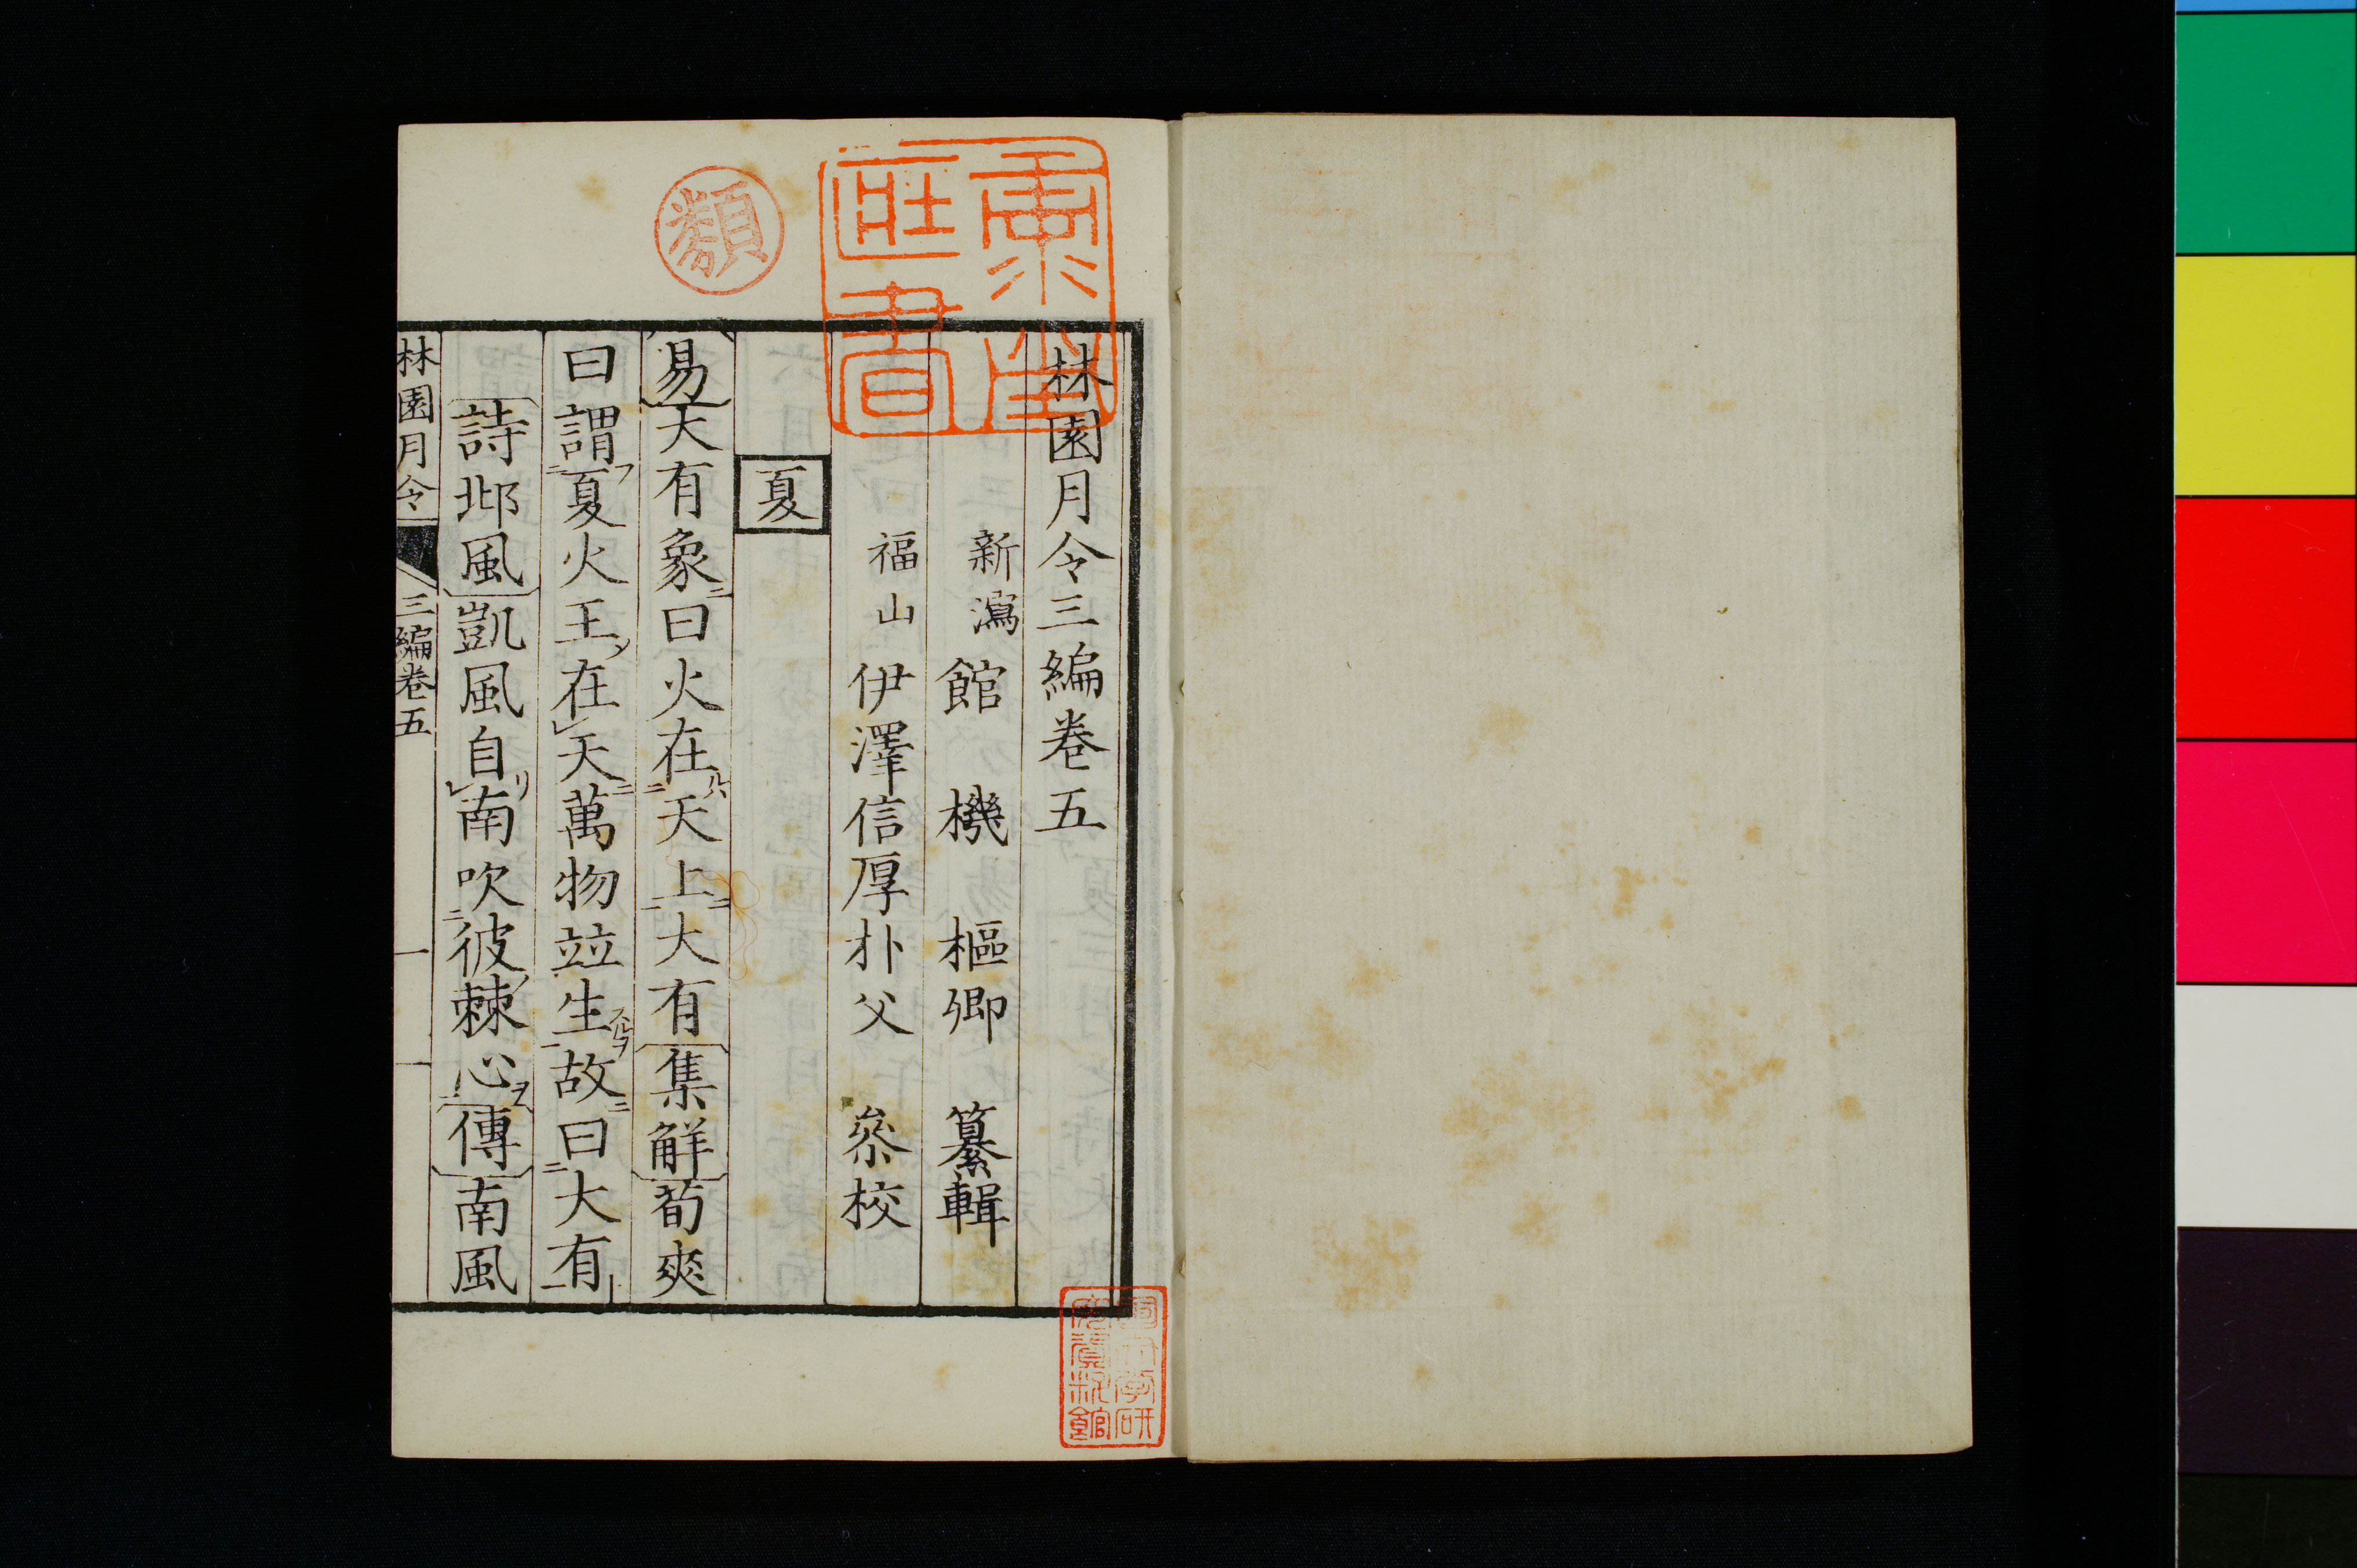 林園月令三編卷五
新瀉 館 機 樞卿 纂輯
福山 伊澤信厚朴父 叅校
夏
易大有象曰火在天上大有集解荀爽
曰謂夏火王在天萬物竝生故曰大有
詩邶風凱風自南吹彼棘心傳南風
林園月令 三編卷五 一
纇